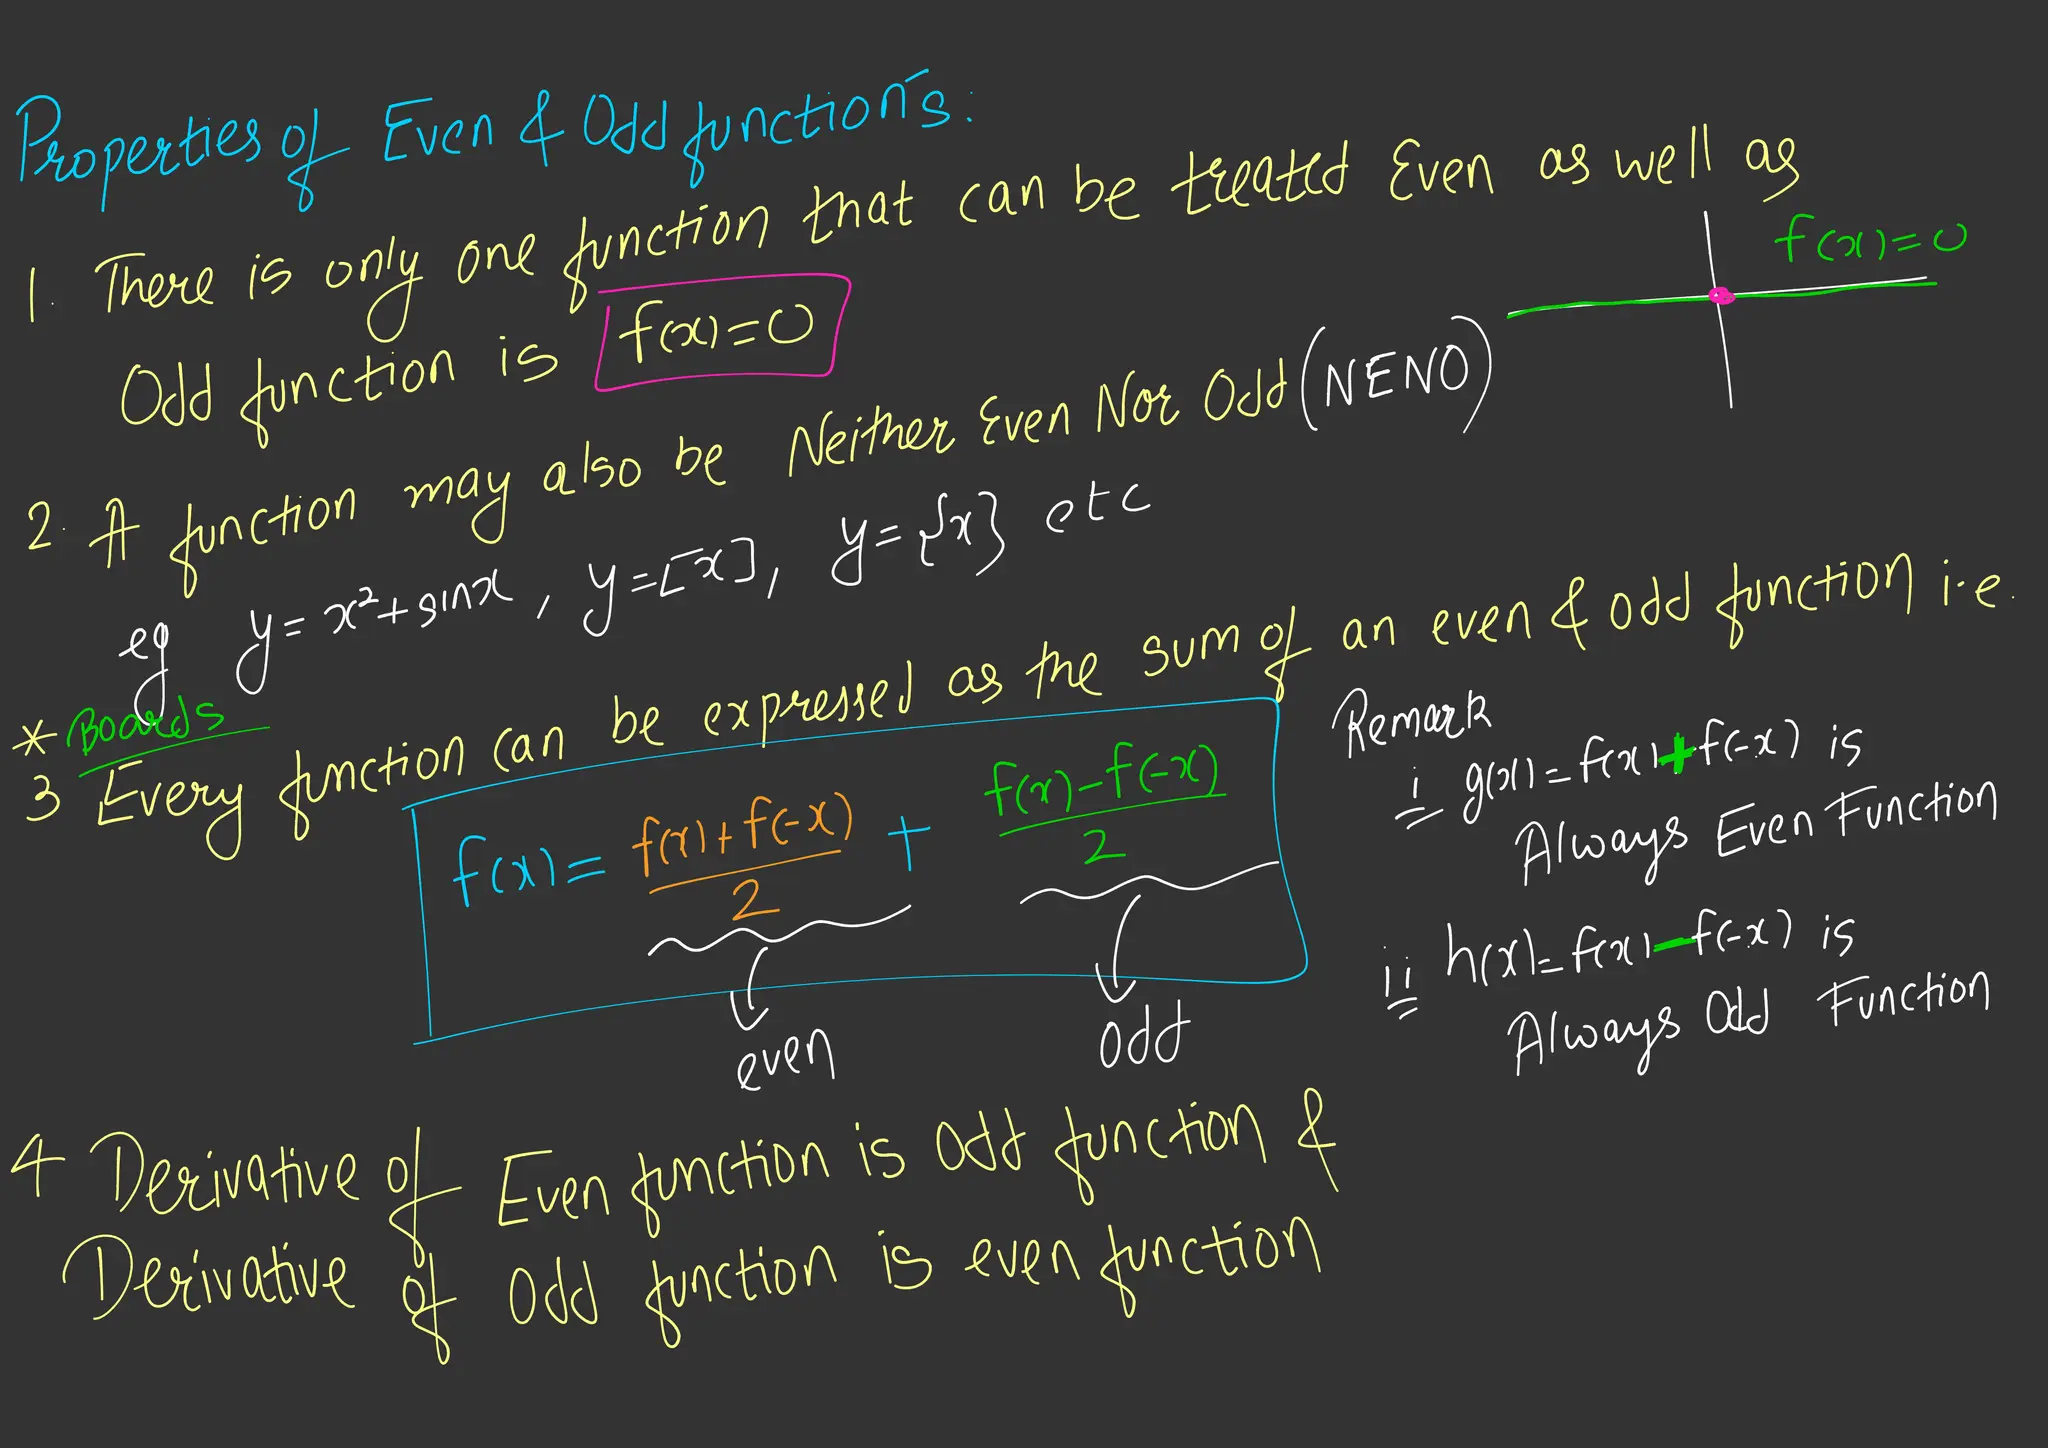 Properties of Even & Odd functions:
1. There is only one function that can be treated Even as well as
Odd function is f(x)=0
f(x)=0
2. A function may also be Neither Even Nor Odd (NENO)
eg y=x²+sinx, y=[x], y={x} etc
* Boards
3 Every function can be expressed as the sum of an even & odd function i.e.
f(x) = (f(x)+f(-x))/2 + (f(x)-f(-x))/2
even odd
Remark
i g(x)=f(x)+f(-x) is
Always Even Function
ii h(x)=f(x)-f(-x) is
Always Odd Function
4 Derivative of Even function is odd function &
Derivative of odd function is even function